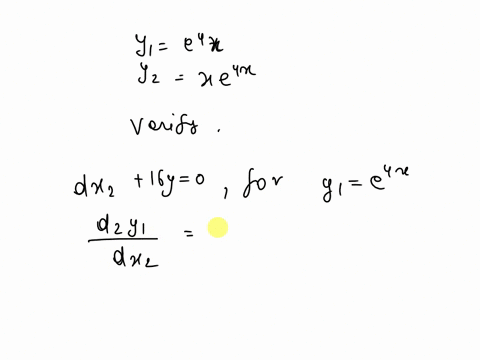 y₁ = e⁴ˣ
y₂ = xe⁴ˣ
Verify.
dx₂ + 16y = 0, for y₁ = e⁴ˣ
d₂y₁ / dx₂ =